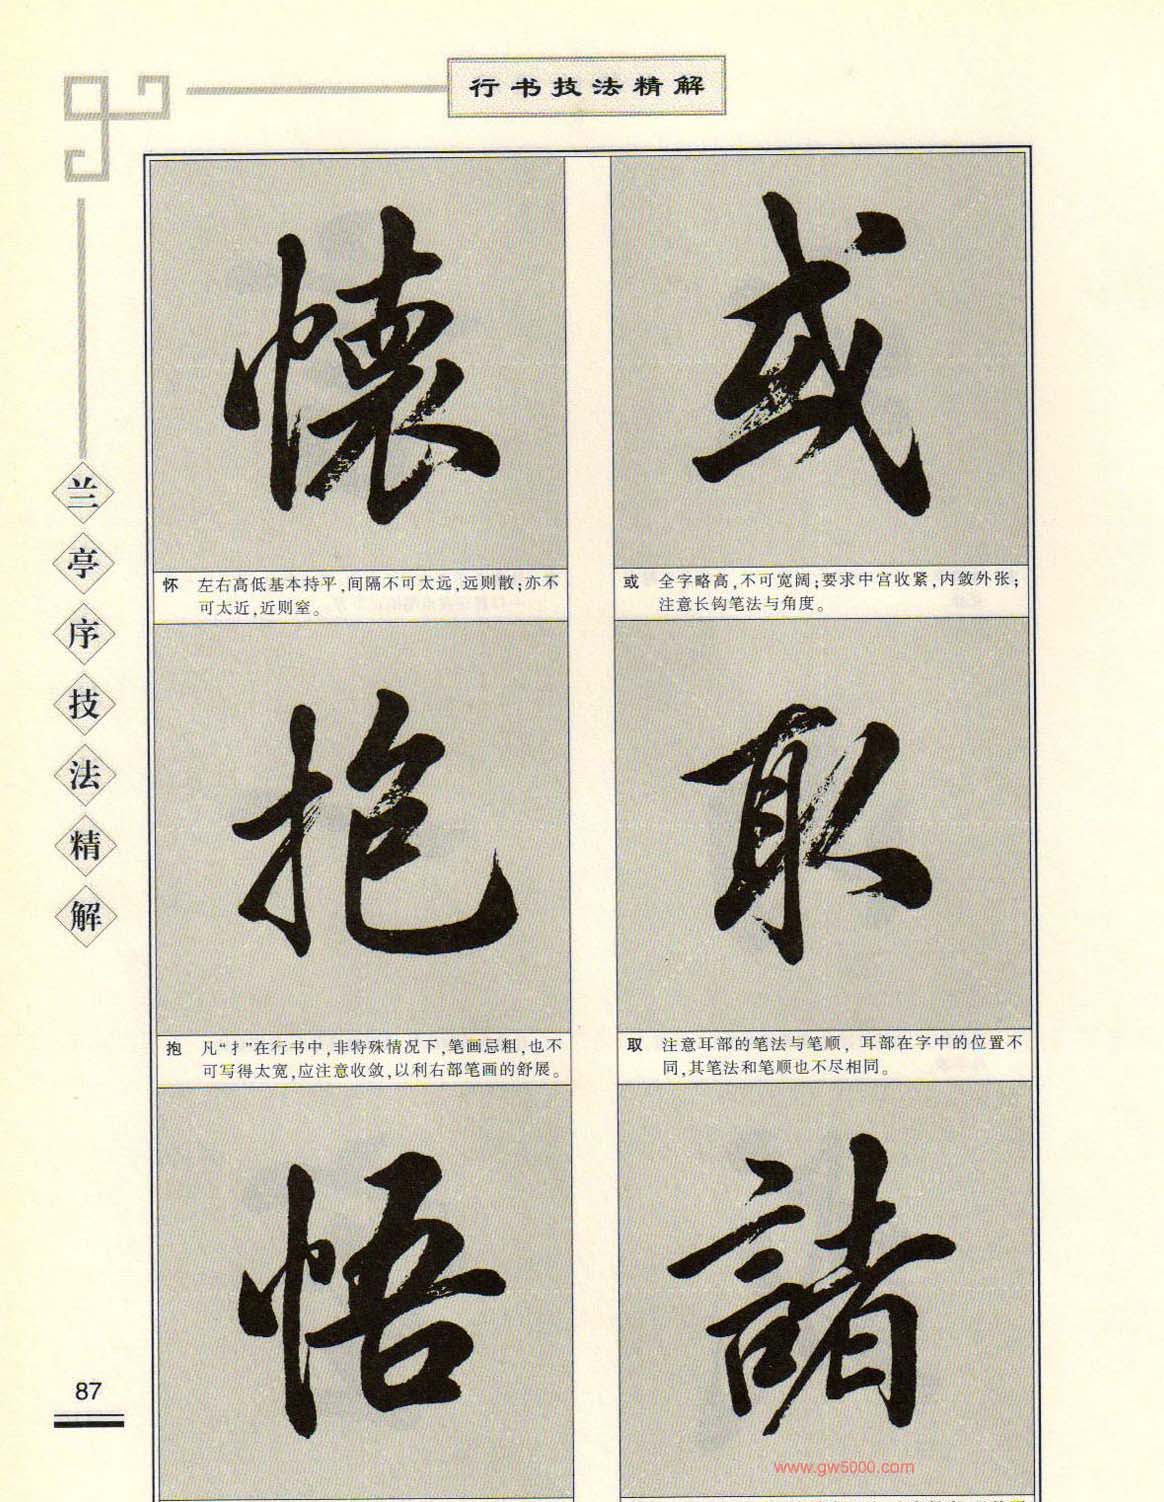 行书技法精解
兰亭序技法精解
懷
怀 左右高低基本持平,间隔不可太远,远则散;亦不
可太近,近则窒。
或
或 全字略高,不可宽阔;要求中宫收紧,内敛外张;
注意长钩笔法与角度。
抱
抱 凡“扌”在行书中,非特殊情况下,笔画忌粗,也不
可写得太宽,应注意收敛,以利右部笔画的舒展。
取
取 注意耳部的笔法与笔顺,耳部在字中的位置不
同,其笔法和笔顺也不尽相同。
悟
諸
87
www.gw5000.com